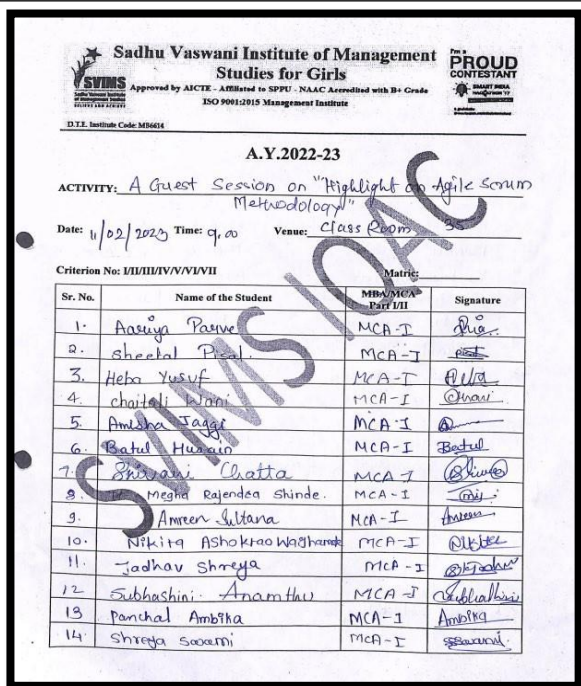 Sadhu Vaswani Institute of Management
Studies for Girls
Approved by AICTE - Affiliated to SPPU - NAAC Accredited with B+ Grade
ISO 9001:2015 Management Institute
SVIMS
I'm a
PROUD
CONTESTANT
SMART INDIA
D.T.E. Institute Code: MB6614
A.Y.2022-23
ACTIVITY: A Guest Session on "Highlight on Agile Scrum
Methodology"
Date: 11/02/2023 Time: 9.00 Venue: Class Room 35
Criterion No: I/II/III/IV/V/VI/VII Matric:
Sr. No. Name of the Student MBA/MCA Part I/II Signature
1. MCA-I
2. Sheetal Pisal. MCA-I
3. Heba Yusuf MCA-I Heba
4. Chaitali Wani MCA-I
5. Amisha Jaggi MCA-I
6. Batul Husain MCA-I Batul
7. Shivani Chatta MCA-I
8. Megha Rajendra Shinde. MCA-I
9. Amreen Sultana MCA-I Amreen
10. Nikita Ashokrao MCA-I
11. Jadhav Shreya MCA-I
12 Subhashini Anamthu MCA-I
13 Panchal Ambika MCA-I Ambika
14. Shreya MCA-I
SVIMS IQAC